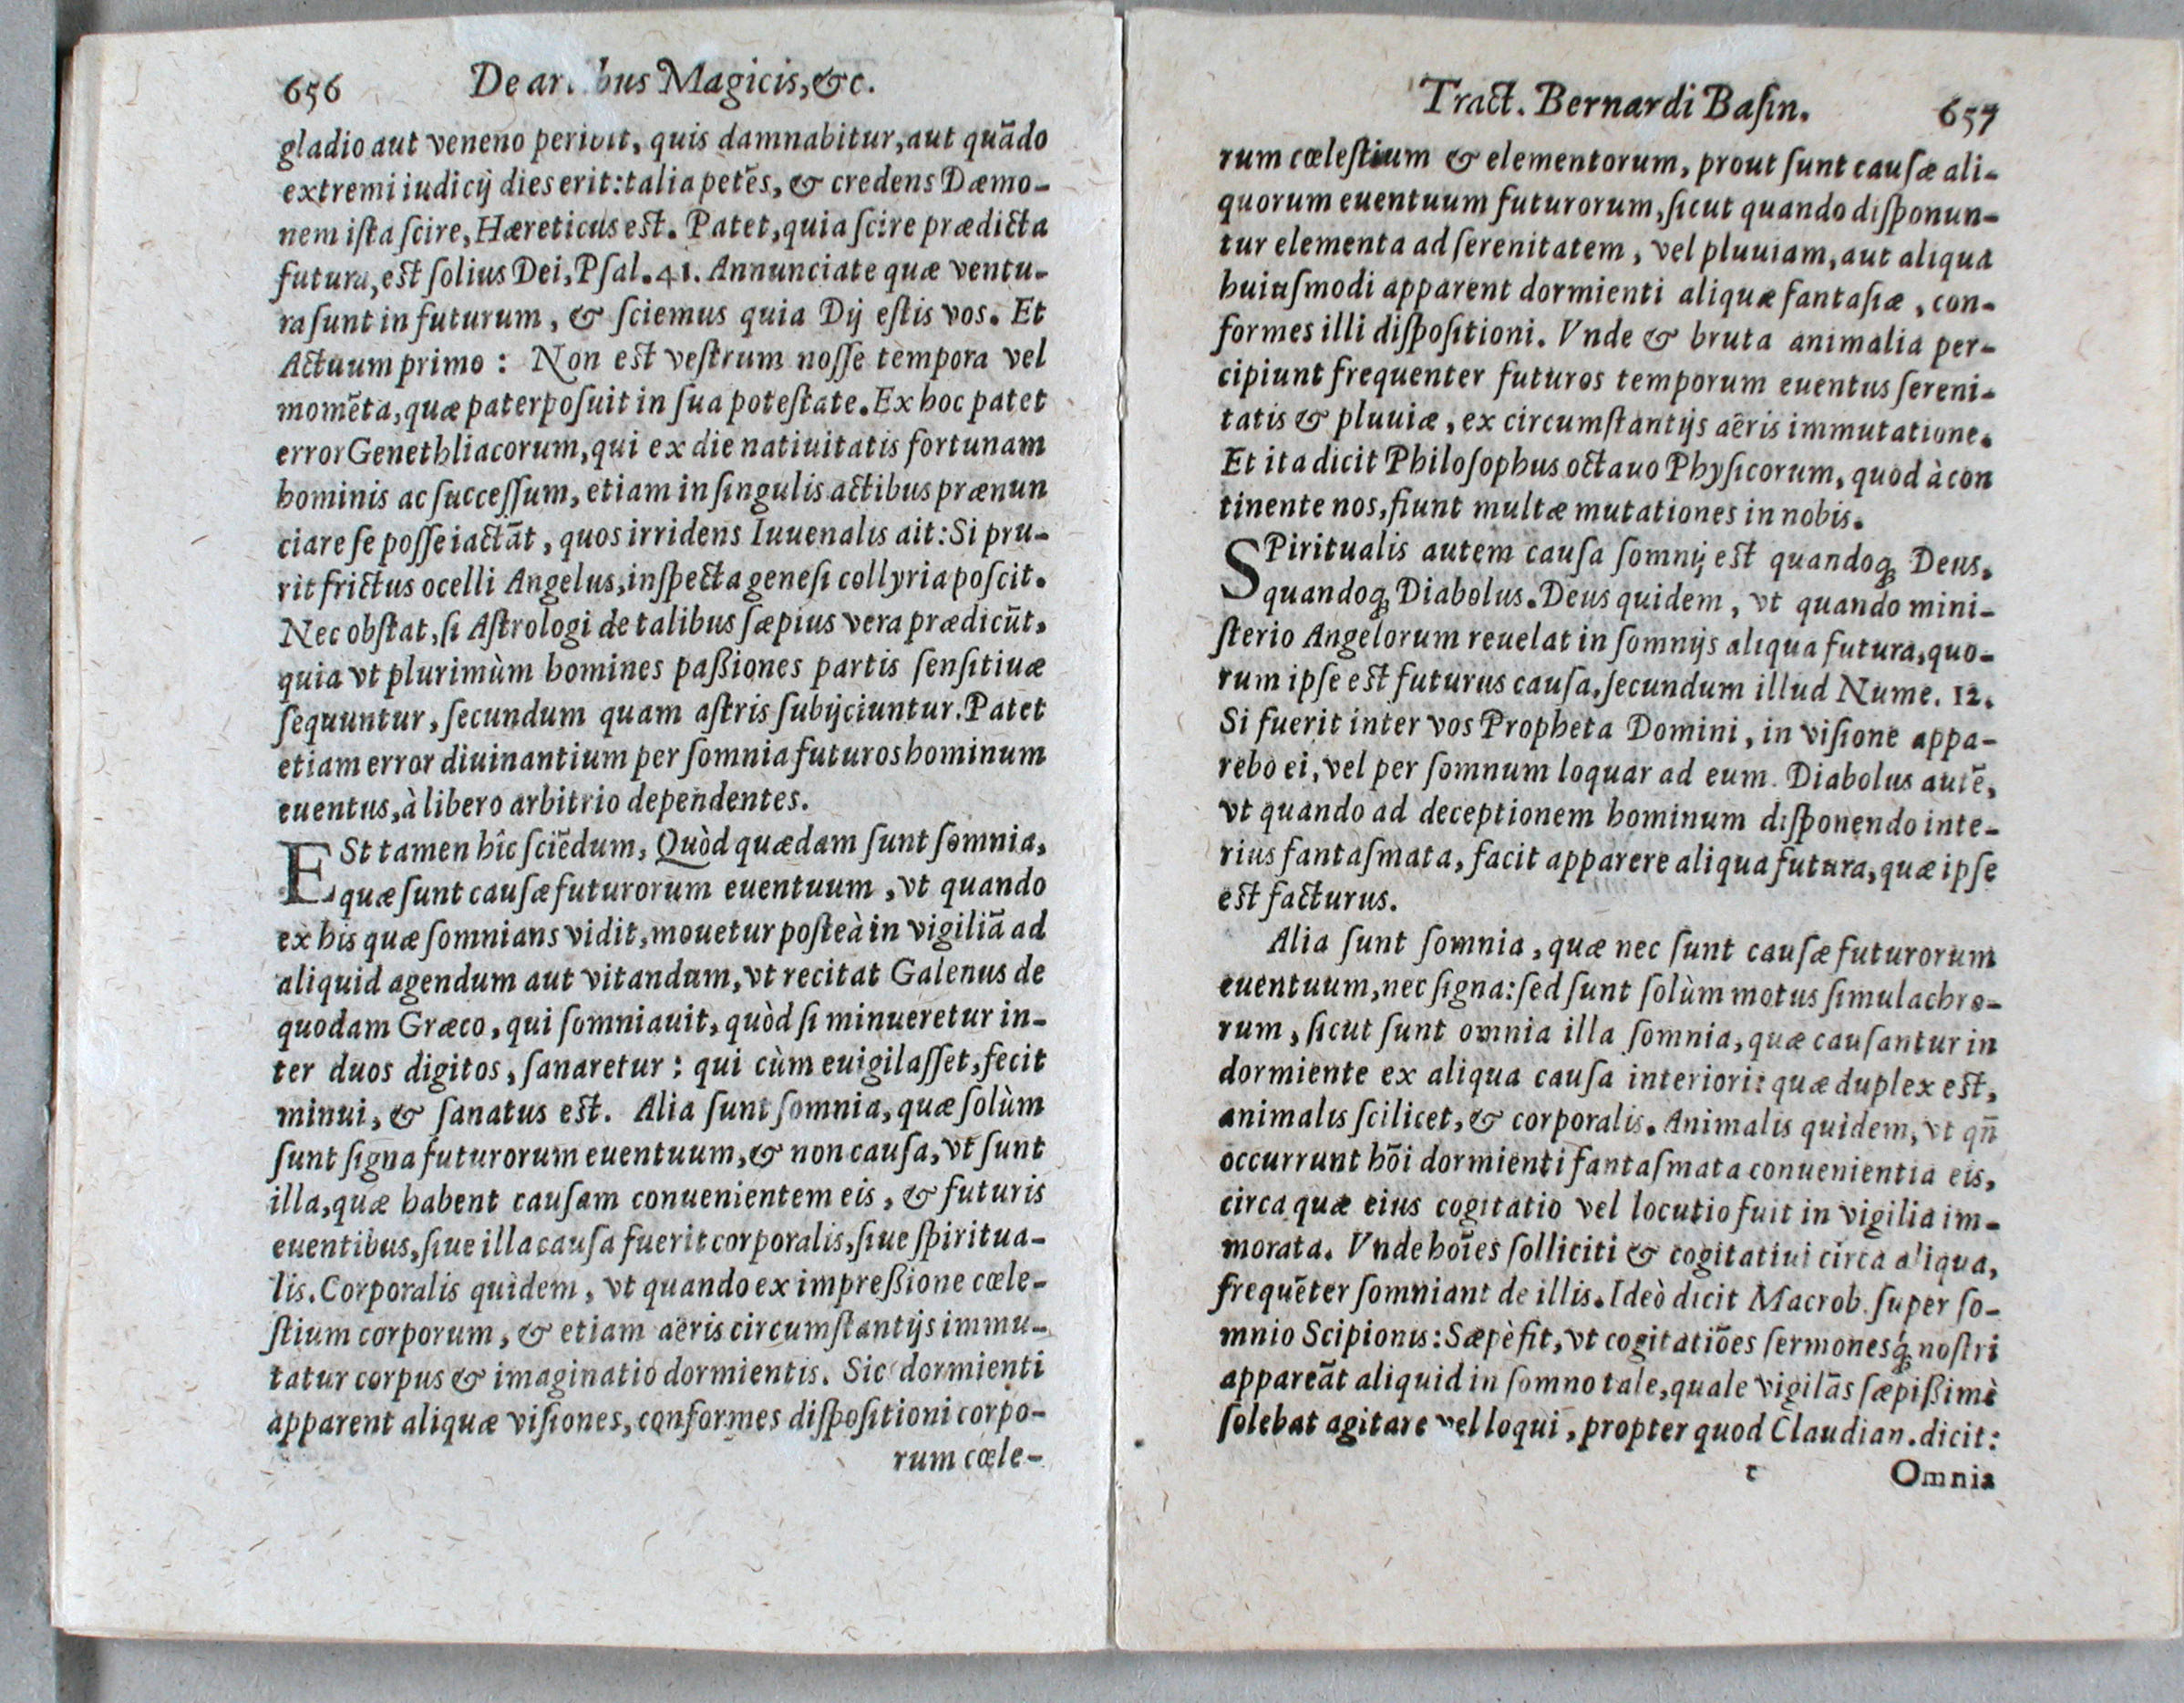 656 De ar bus Magicis, &c.
gladio aut veneno peribit, quis damnabitur, aut quãdo
extremi iudicij dies erit: talia petẽs, & credens Dæmo-
nem ista scire, Hæreticus est. Patet, quia scire prædicta
futura, est solius Dei, Psal. 41. Annunciate quæ ventu-
ra sunt in futurum, & sciemus quia Dij estis vos. Et
Actuum primo: Non est vestrum nosse tempora vel
momẽta, quæ pater posuit in sua potestate. Ex hoc patet
error Genethliacorum, qui ex die natiuitatis fortunam
hominis ac successum, etiam in singulis actibus prænun
ciare se posse iactãt, quos irridens Iuuenalis ait: Si pru-
rit frictus ocelli Angelus, inspecta genesi collyria poscit.
Nec obstat, si Astrologi de talibus sæpius vera prædicũt,
quia vt plurimùm homines paßiones partis sensitiuæ
sequuntur, secundum quam astris subijciuntur. Patet
etiam error diuinantium per somnia futuros hominum
euentus, à libero arbitrio dependentes.
ESt tamen hîc sciẽdum, Quòd quædam sunt somnia,
quæ sunt causæ futurorum euentuum, vt quando
ex his quæ somnians vidit, mouetur posteà in vigiliã ad
aliquid agendum aut vitandum, vt recitat Galenus de
quodam Græco, qui somniauit, quòd si minueretur in-
ter duos digitos, sanaretur: qui cùm euigilasset, fecit
minui, & sanatus est. Alia sunt somnia, quæ solùm
sunt signa futurorum euentuum, & non causa, vt sunt
illa, quæ habent causam conuenientem eis, & futuris
euentibus, siue illa causa fuerit corporalis, siue spiritua-
lis. Corporalis quidem, vt quando ex impreßione cœle-
stium corporum, & etiam aëris circumstantijs immu-
tatur corpus & imaginatio dormientis. Sic dormienti
apparent aliquæ visiones, conformes dispositioni corpo-
rum cœle-
Tract. Bernardi Basin. 657
rum cœlestium & elementorum, prout sunt causæ ali-
quorum euentuum futurorum, sicut quando disponun-
tur elementa ad serenitatem, vel pluuiam, aut aliqua
huiusmodi apparent dormienti aliquæ fantasiæ, con-
formes illi dispositioni. Vnde & bruta animalia per-
cipiunt frequenter futuros temporum euentus sereni-
tatis & pluuiæ, ex circumstantijs aëris immutatione.
Et ita dicit Philosophus octauo Physicorum, quòd à con
tinente nos, fiunt multæ mutationes in nobis.
SPiritualis autem causa somnij est quandoq; Deus,
quandoq; Diabolus. Deus quidem, vt quando mini-
sterio Angelorum reuelat in somnijs aliqua futura, quo-
rum ipse est futurus causa, secundum illud Nume. 12.
Si fuerit inter vos Propheta Domini, in visione appa-
rebo ei, vel per somnum loquar ad eum. Diabolus autẽ,
vt quando ad deceptionem hominum disponendo inte-
rius fantasmata, facit apparere aliqua futura, quæ ipse
est facturus.
Alia sunt somnia, quæ nec sunt causæ futurorum
euentuum, nec signa: sed sunt solùm motus simulachro-
rum, sicut sunt omnia illa somnia, quæ causantur in
dormiente ex aliqua causa interiori: quæ duplex est,
animalis scilicet, & corporalis. Animalis quidem, vt qñ
occurrunt hõi dormienti fantasmata conuenientia eis,
circa quæ eius cogitatio vel locutio fuit in vigilia im-
morata. Vnde hoĩes solliciti & cogitatiui circa aliqua,
frequẽter somniant de illis. Ideò dicit Macrob. super so-
mnio Scipionis: Sæpè fit, vt cogitatiões sermonesq́; nostri
appareãt aliquid in somno tale, quale vigilãs sæpißimè
solebat agitare vel loqui, propter quod Claudian. dicit:
t Omnia